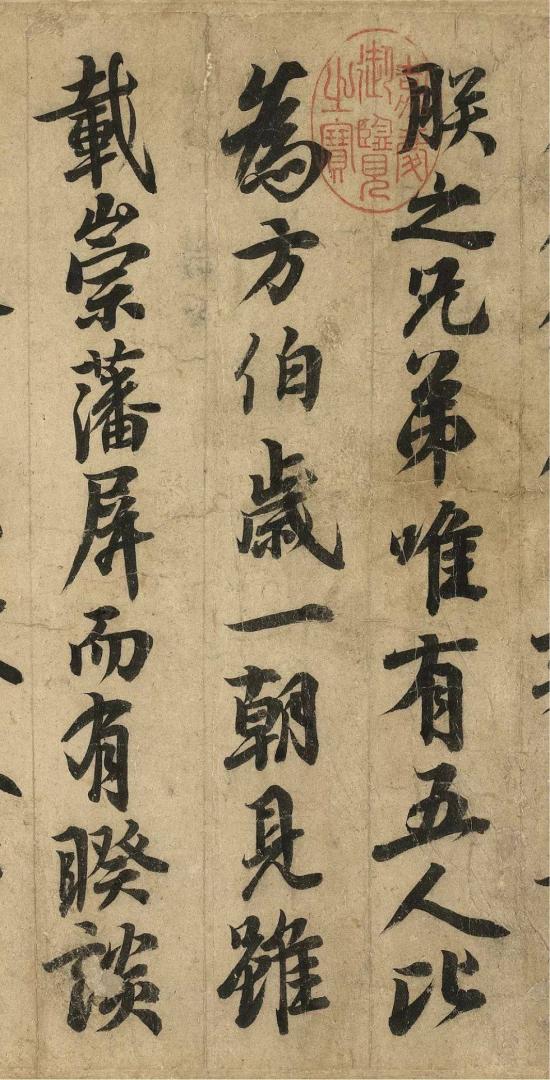 朕之兄弟唯有五人比
為方伯歲一朝見雖
載崇藩屏而有睽談
嘉慶
御覽
之寶